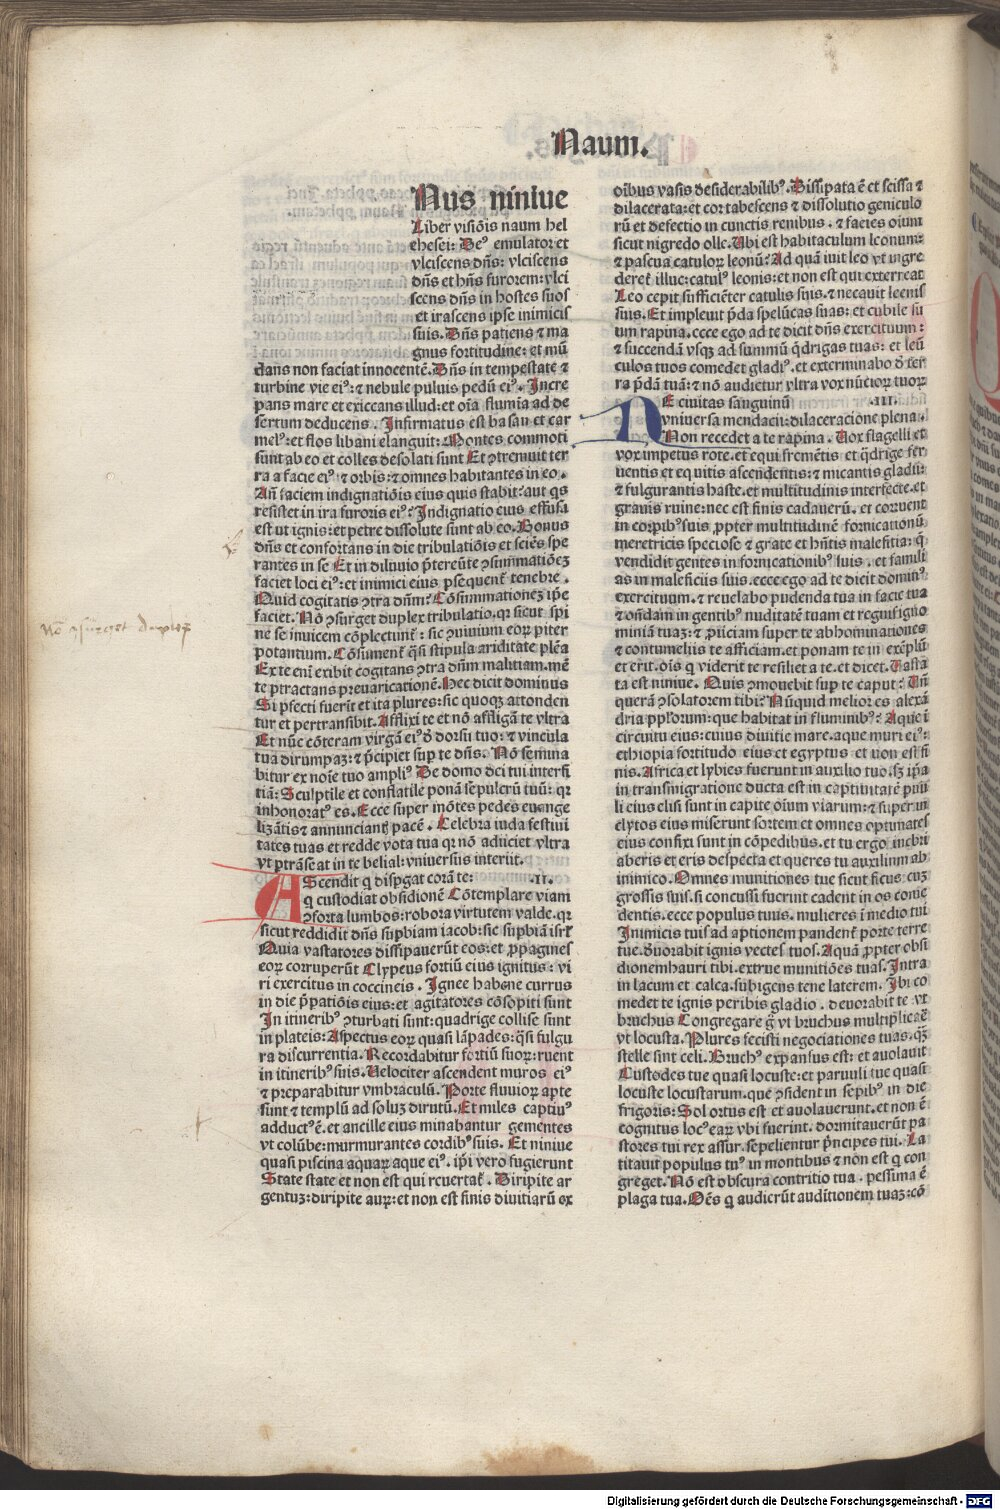 Naum.
Nus niniue
Liber visiõis naum hel
chesei: Deꝰ emulator et
vlciscens dñs: vlciscens
dñs et hñs furorem: vlci
scens dñs in hostes suos
et irascens ipse inimicis
suis. Dñs patiens ⁊ ma
gnus fortitudine: et mũ
dans non faciat innocentẽ. Dñs in tempestate ⁊
turbine vie eiꝰ: ⁊ nebule puluis pedũ eiꝰ. Incre
pans mare et exiccans illud: et oĩa flumĩa ad de
sertum deducens. Infirmatus est basan et car
melꝰ: et flos libani elanguit: Montes commoti
sunt ab eo et colles desolati sunt Et ꝯtremuit ter
ra a facie eiꝰ ⁊ orbis: ⁊ omnes habitantes in eo.
Añ faciem indignatiõis eius quis stabit: aut qs
resistet in ira furoris eiꝰ? Indignatio eius effusa
est ut ignis: et petre dissolute sunt ab eo. Bonus
dñs et confortans in die tribulatiõis et sciẽs spe
rantes in se Et in diluuio p̃tereũte ꝯsummatiõeꝫ
faciet loci eiꝰ: et inimici eius ꝑsequent̃ tenebre.
Quid cogitatis ꝯtra dñm? Cõsummationeꝫ ip̃e
faciet. Nõ ꝯsurget duplex tribulatio. qꝛ sicut spi
ne se inuicem cõplectunt̃: sic ꝯuiuium eoꝝ piter
potantium. Cõsument̃ q̃si stipula ariditate plẽa
Ex te eni exibit cogitans ꝯtra dñm malitiam. mẽ
te ptractans preuaricationẽ. Hec dicit dominus
Si ꝑfecti fuerit et ita plures: sic quoqꝫ attonden
tur et pertransibit. Afflixi te et nõ affligã te vltra
Et nũc cõteram virgã eiꝰ d̃ dorso tuo: ⁊ vincula
tua dirumpaꝫ: ⁊ p̃cipiet suꝑ te dñs. Nõ semina
bitur ex noĩe tuo ampliꝰ De domo dei tui interfi
tiã: Sculptile et conflatile ponã sepulcrũ tuũ: qꝛ
inhonoratꝰ es. Ecce super mõtes pedes euange
lizãtis ⁊ annunciant̃ pacẽ. Celebra iuda festiui
tates tuas et redde vota tua qꝛ nõ adiiciet vltra
vt ptrãseat in te belial: vniuersus interiit.
AScendit q dispgat corã te: .II.
q custodiat obsidionẽ Cõtemplare viam
ꝯforta lumbos: robora virtutem valde. qꝛ
sicut reddidit dñs supbiam iacob: sic supbiã isrł
Quia vastatores dissipauerũt eos: et ꝓpagines
eoꝝ corruperũt Clypeus fortiũ eius ignitus: vi
ri exercitus in coccineis. Ignee habene currus
in die p̃patiõis eius: et agitatores cõsopiti sunt
In itineribꝰ ꝯturbati sunt: quadrige collise sunt
in plateis: Aspectus eoꝝ quasi lãpades: q̃si fulgu
ra discurrentia. Recordabitur fortiũ suoꝝ: ruent
in itineribꝰ suis. Velociter ascendent muros eiꝰ
⁊ preparabitur vmbraculũ. Porte fluuioꝝ apte
sunt ⁊ templũ ad soluꝫ dirutũ. Et miles captiuꝰ
adductꝰ ẽ. et ancille eius minabantur gementes
vt colũbe: murmurantes cordibꝰ suis. Et niniue
quasi piscina aquaꝝ aque eiꝰ. ip̃i vero fugierunt
State state et non est qui reuertat̃. Diripite ar
gentuꝫ: diripite auꝝ: et non est finis diuitiarũ ex
oĩbus vasis desiderabilibꝰ. Dissipata ẽ et scissa ⁊
dilacerata: et cor tabescens ⁊ dissolutio geniculo
rũ et defectio in cunctis renibus. ⁊ facies oĩum
sicut nigredo olle. Ubi est habitaculum leonum:
⁊ pascua catuloꝝ leonũ? Ad quã iuit leo vt ingre
deret̃ illuc: catulꝰ leonis: et non est qui exterreat
Leo cepit sufficiẽter catulis suis. ⁊ necauit leenis
suis. Et impleuit p̃da spelũcas suas: et cubile su
um rapina. ecce ego ad te dicit dñs exercituum:
⁊ succendã vsqꝫ ad summũ q̃drigas tuas: et leũ
culos tuos comedet gladiꝰ. et exterminabo d̃ ter
ra p̃dã tuã: ⁊ nõ audietur vltra vox nũcioꝝ tuoꝝ
VE ciuitas sanguinũ .III.
vniuersa mendacii: dilaceracione plena.
Non recedet a te rapina. Vox flagelli et
vox impetus rote. et equi fremẽtis et q̃drige fer
uentis et equitis ascendentis: ⁊ micantis gladii:
⁊ fulgurantis haste. et multitudinis interfecte. et
grauis ruine: nec est finis cadauerũ. et corruent
in corpibꝰ suis ꝓpter multitudinẽ fornicationũ
meretricis speciose ⁊ grate et hñtis malefitia: q̃
vendidit gentes in fornicationibꝰ suis. et famili
as in maleficiis suis. ecce ego ad te dicit dominꝰ
exercituum. ⁊ reuelabo pudenda tua in facie tua
⁊ oñdam in gentibꝰ nuditatẽ tuam et regnis igno
miniã tuaꝫ: ⁊ ꝓiiciam super te abhominationes
⁊ contumeliis te afficiam. et ponam te in exẽplũ
et erit. oĩs q viderit te resiliet a te. et dicet. Vasta
ta est niniue. Quis ꝯmouebit suꝑ te caput? Vñ
querã ꝯsolatorem tibi? Nũquid melior es alexã
dria pploꝝum: que habitat in fluminibꝰ? Aque ĩ
circuitu eius: cuius diuitie mare. aque muri eiꝰ:
ethiopia fortitudo eius et egyptus et non est fi
nis. Africa et lybies fuerunt in auxilio tuo. sꝫ ip̃a
in transmigratione ducta est in captiuitatẽ paruu
li eius elisi sunt in capite oĩum viarum: ⁊ super in
clytos eius miserunt sortem et omnes optimates
eius confixi sunt in cõpedibus. et tu ergo inebri
aberis et eris despecta et queres tu auxilium ab
inimico. Omnes munitiones tue sicut ficus cuꝫ
grossis suis. si concussi fuerint cadent in os come
dentis. ecce populus tuus. mulieres ĩ medio tui
Inimicis tuis ad aptionem pandent̃ porte terre
tue. d̃uorabit ignis vectes tuos. Aquã ꝓpter obsi
dionem hauri tibi. extrue munitiões tuas. Intra
in lacum et calca. subigens tene laterem. Ibi co
medet te ignis peribis gladio. deuorabit te vt
bruchus Congregare g̃ vt bruchus multiplicare
vt locusta. Plures fecisti negociationes tuas. q̃ꝫ
stelle sint celi. Bruchꝰ expansus est: et auolauit
Custodes tue quasi locuste: et paruuli tue quasi
locuste locustarum. que ꝯsident in sepibꝰ in die
frigoris: Sol ortus est et auolauerunt. et non ẽ
cognitus locꝰ eaꝝ vbi fuerint. dormitauerũt pa
stores tui rex assur. sepelientur p̃ncipes tui. La
titauit populus tuꝰ in montibus ⁊ non est q con
greget. Nõ est obscura contritio tua. pessima ẽ
plaga tua. Oẽs q audierũt auditionem tuaꝫ: cõ
nõ ꝯsurget duplex
Digitalisierung gefördert durch die Deutsche Forschungsgemeinschaft - DFG